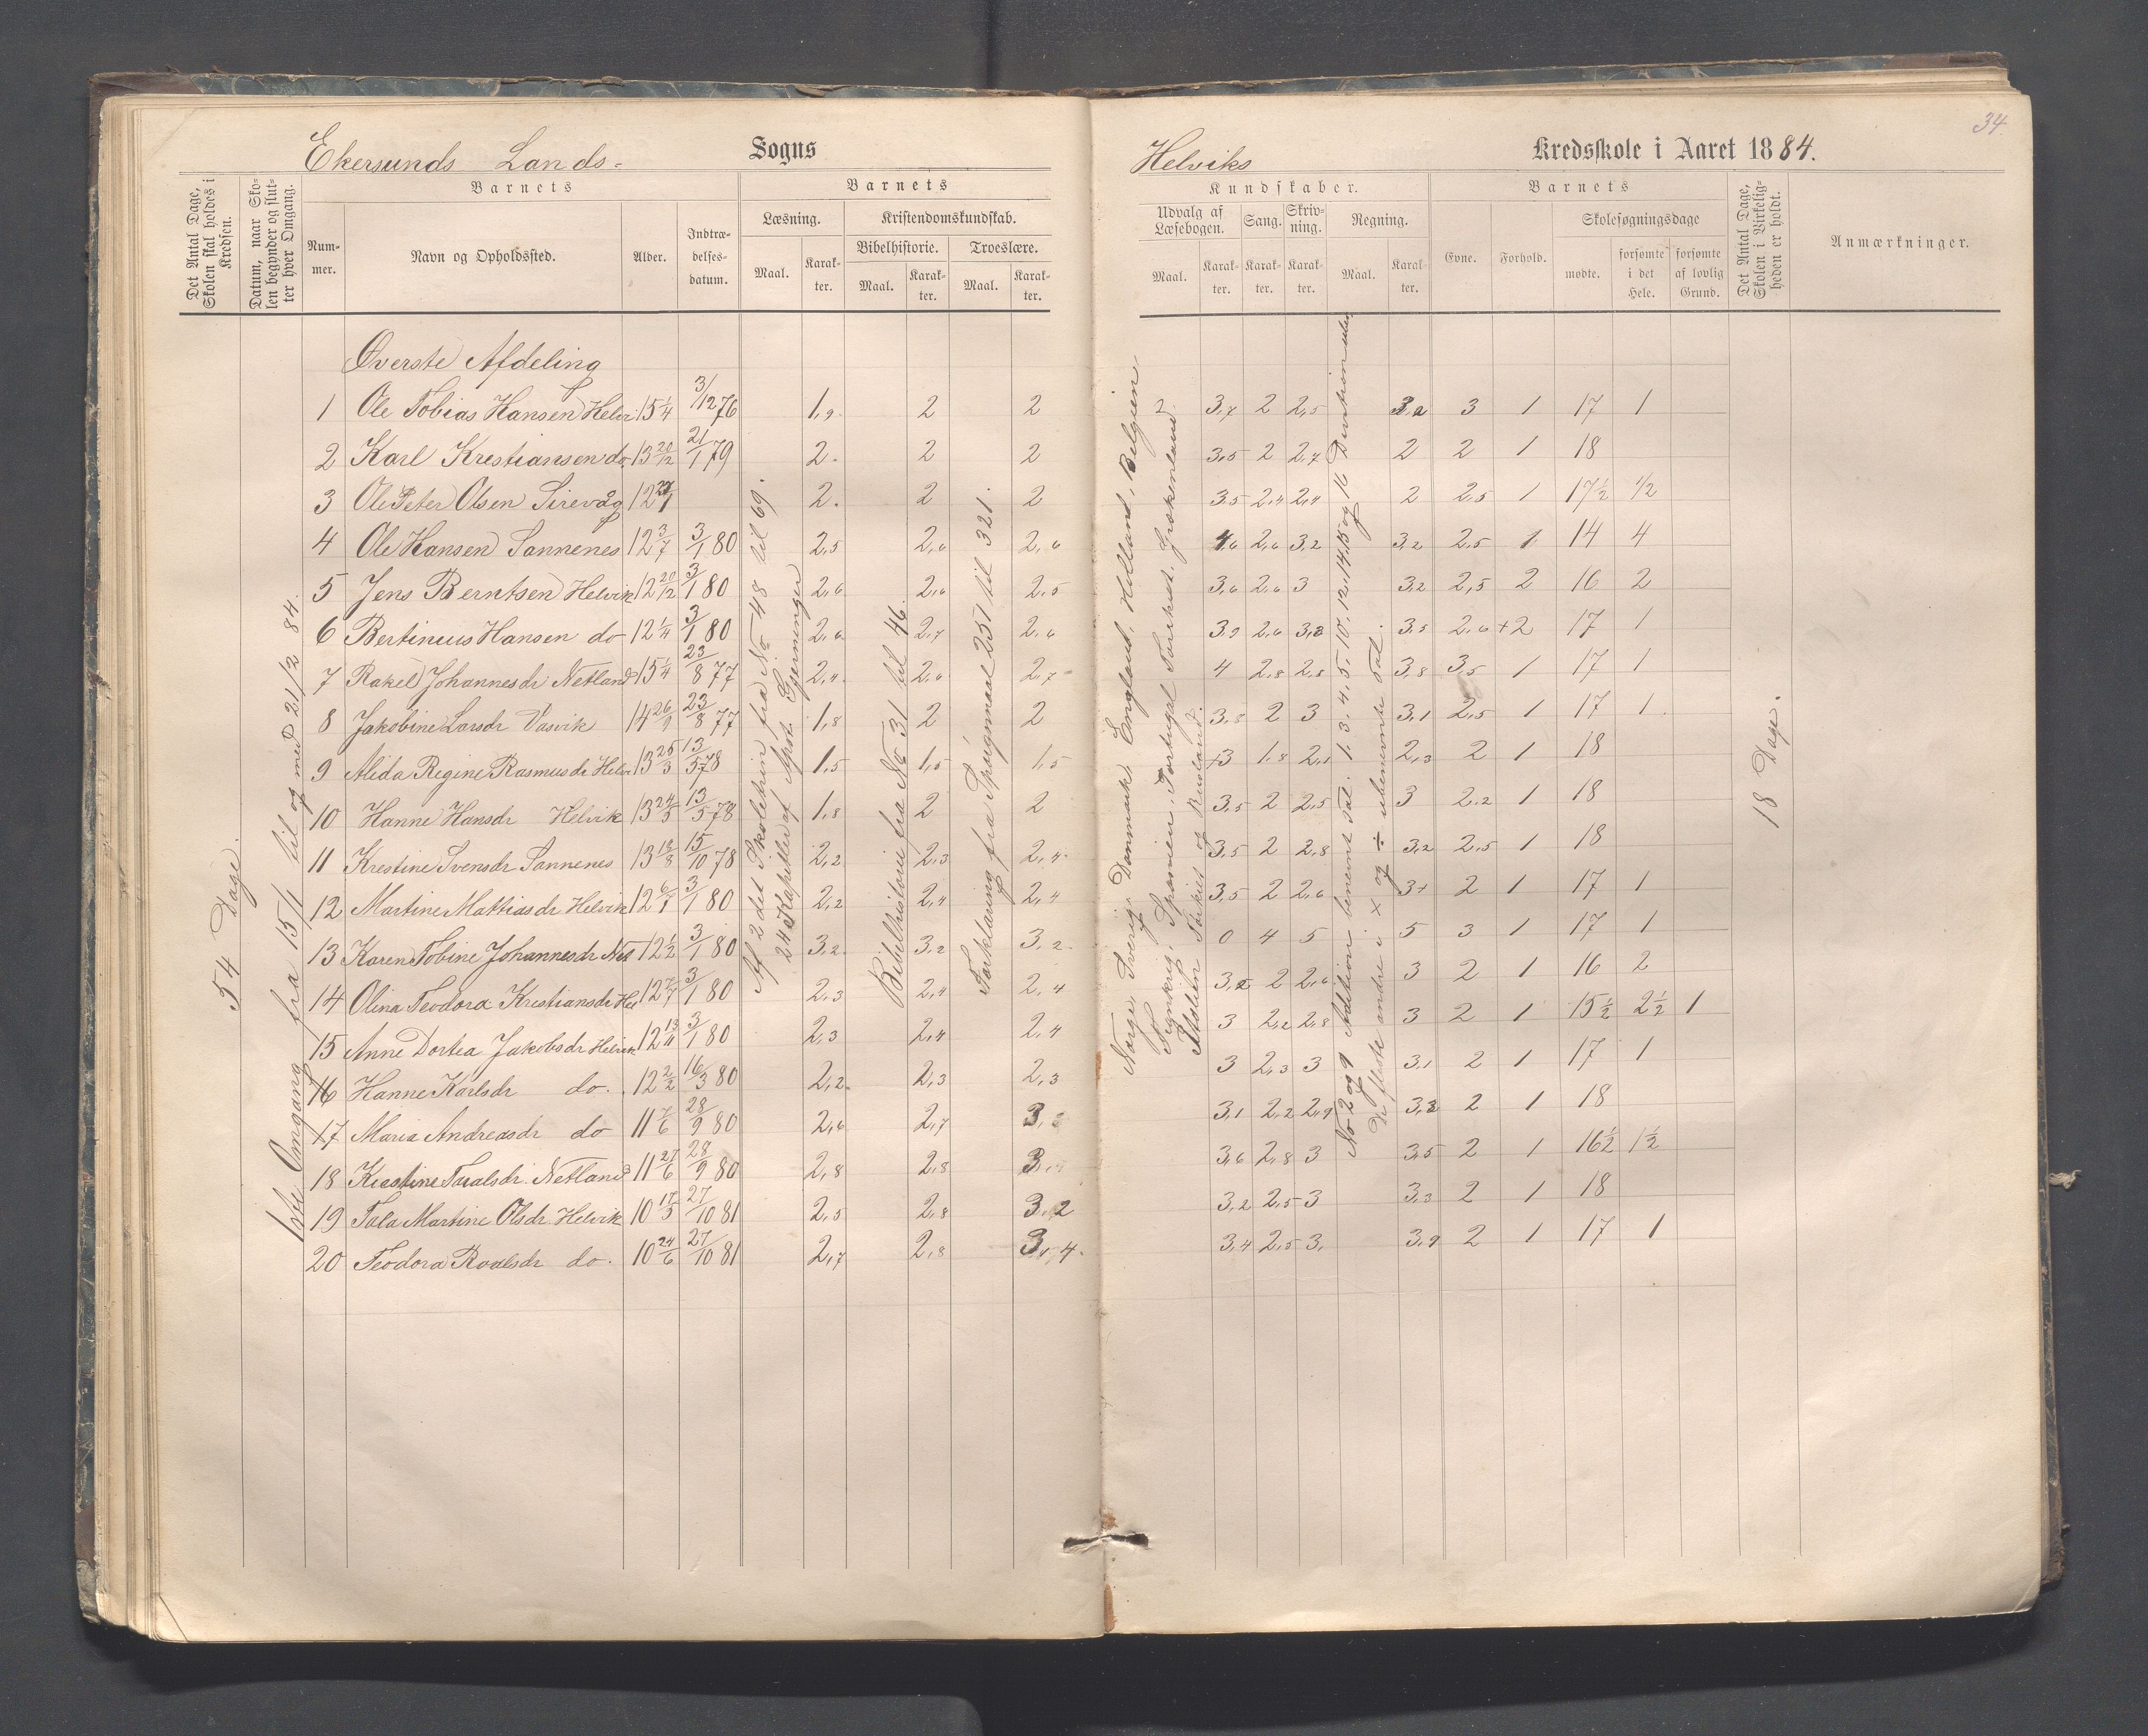 34
Ekersunds Lands- Sogns
Helviks Kredsskole i Aaret 1884.
Det Antal Dage, Skolen skal holdes i Kredsen.
Datum, naar Skolen begynder og slutter hver Omgang.
Barnets
Nummer.
Navn og Opholdssted.
Alder.
Indtrædelsesdatum.
Barnets
Læsning.
Maal. Karakter.
Kristendomskundskab.
Bibelhistorie. Troeslære.
Maal. Karakter. Maal. Karakter.
Kundskaber.
Udvalg af Læsebogen. Sang. Skrivning. Regning.
Maal. Karakter. Karakter. Karakter. Maal. Karakter.
Barnets
Evne. Forhold.
Skolesøgningsdage
mødte. forsømte i det Hele. forsømte af lovlig Grund.
Det Antal Dage, Skolen i Virkeligheden er holdt.
Anmærkninger.
54 Dage
1ste Omgang fra 15/1 til og med 21/2 84.
Øverste Afdeling
1 Ole Tobias Hansen Helv 15 1/4 3/12 76 1,9 2 2 2 3,7 2 2,5 3,2 3 1 17 1
2 Karl Krestiansen do 13 20/12 21/1 79 2. 2 2 3,5 2 2,7 2 2 1 18
3 Ole Peter Olsen Sirevåg 2. 2 2 3,5 2,4 2,4 2 2,5 1 17½ ½
4 Ole Hansen Sannenes 12 3/7 3/1 80 2,5 2,6 2,6 4,6 2,6 3,2 3,2 2,5 1 14 4
5 Jens Berntsen Helvik 12 20/12 3/1 80 2,6 2,6 2,5 3,6 2,6 3 3,2 2,5 2 16 2
6 Bertinius Hansen do 12 1/4 3/1 80 2,6 2,7 2,6 3,9 2,6 3,3 3,5 2,6 +2 17 1
7 Rakel Johannesdr Netland 15 1/4 23/8 77 2,4 2,6 2,7 4 2,8 2,8 3,8 3,5 1 17 1
8 Jakobine Larsdr Vasvik 14 26/9 23/8 77 1,8 2 2 3,8 2 3 3,1 2,5 1 17 1
9 Alida Regine Rasmusdr Helv 13 25/3 13/5 78 1,5 1,5 1,5 +3 1,8 2,1 2,3 2 1 18
10 Hanne Hansdr Helvik 13 24/5 13/5 78 1,8 2 2 3,5 2 2,5 3 2,2 1 18
11 Krestine Svensdr Sannenes 13 13/8 15/10 78 2,2 2,3 2,4 3,5 2 2,8 3,2 2,5 1 18
12 Martine Mattiasdr Helvik 12 6/7 3/1 80 2,2 2,4 2,4 3,5 2 2,6 3+ 2 1 17 1
13 Karen Tobine Johannesdr Net 12 1/2 3/1 80 3,2 3,2 3,2 0 4 5 5 3 1 17 1
14 Olina Teodora Krestiansdr Hel 12 7/7 3/1 80 2,3 2,4 2,4 3,2 2 2,6 3 2 1 16 2
15 Anne Dortea Jakobsdr Helvik 12 13/4 3/1 80 2,3 2,4 2,4 3 2,2 2,8 3 2 1 15½ 2½ 1
16 Hanne Karlsdr do. 12 2/2 16/3 80 2,2 2,3 2,3 3 2,3 3 3,1 2 1 17 1
17 Maria Andreasdr do 11 7/6 28/9 80 2,6 2,7 3,1 2,2 2,9 3,3 2 1 18
18 Krestine Taralsdr. Netland 11 27/6 28/9 80 2,8 2,8 3,6 2,8 3 3,5 2 1 16½ 1½
19 Tala Martine Olsdr Helvik 10 17/5 27/10 81 2,5 2,8 3,2 3,2 2,5 3 3,3 2 1 18
20 Teodora Roalsdr do. 10 24/6 27/10 81 2,7 2,8 3,4 3,4 2,5 3, 3,9 2 1 17 1
Af 2 det Skoletrin fra No 48 til 69.
24 Kapitler af Apost. Gjerninger
Bibelhistorie fra No 31 til 46.
Forklaring fra Spørgsmaal 251 til 321.
Norge, Sverig, Danmark, England, Holland, Belgien
Frankrig, Spanien, Portugal Grækenland.
Italien Tyrkiet og Rusland.
No 2 og 9 Addition benevnt Tal. 1. 3. 4. 5. 10. 12. 14. 15 og 16
De fleste andre i × og ÷ ubenevnte Tal.
18 Dage.